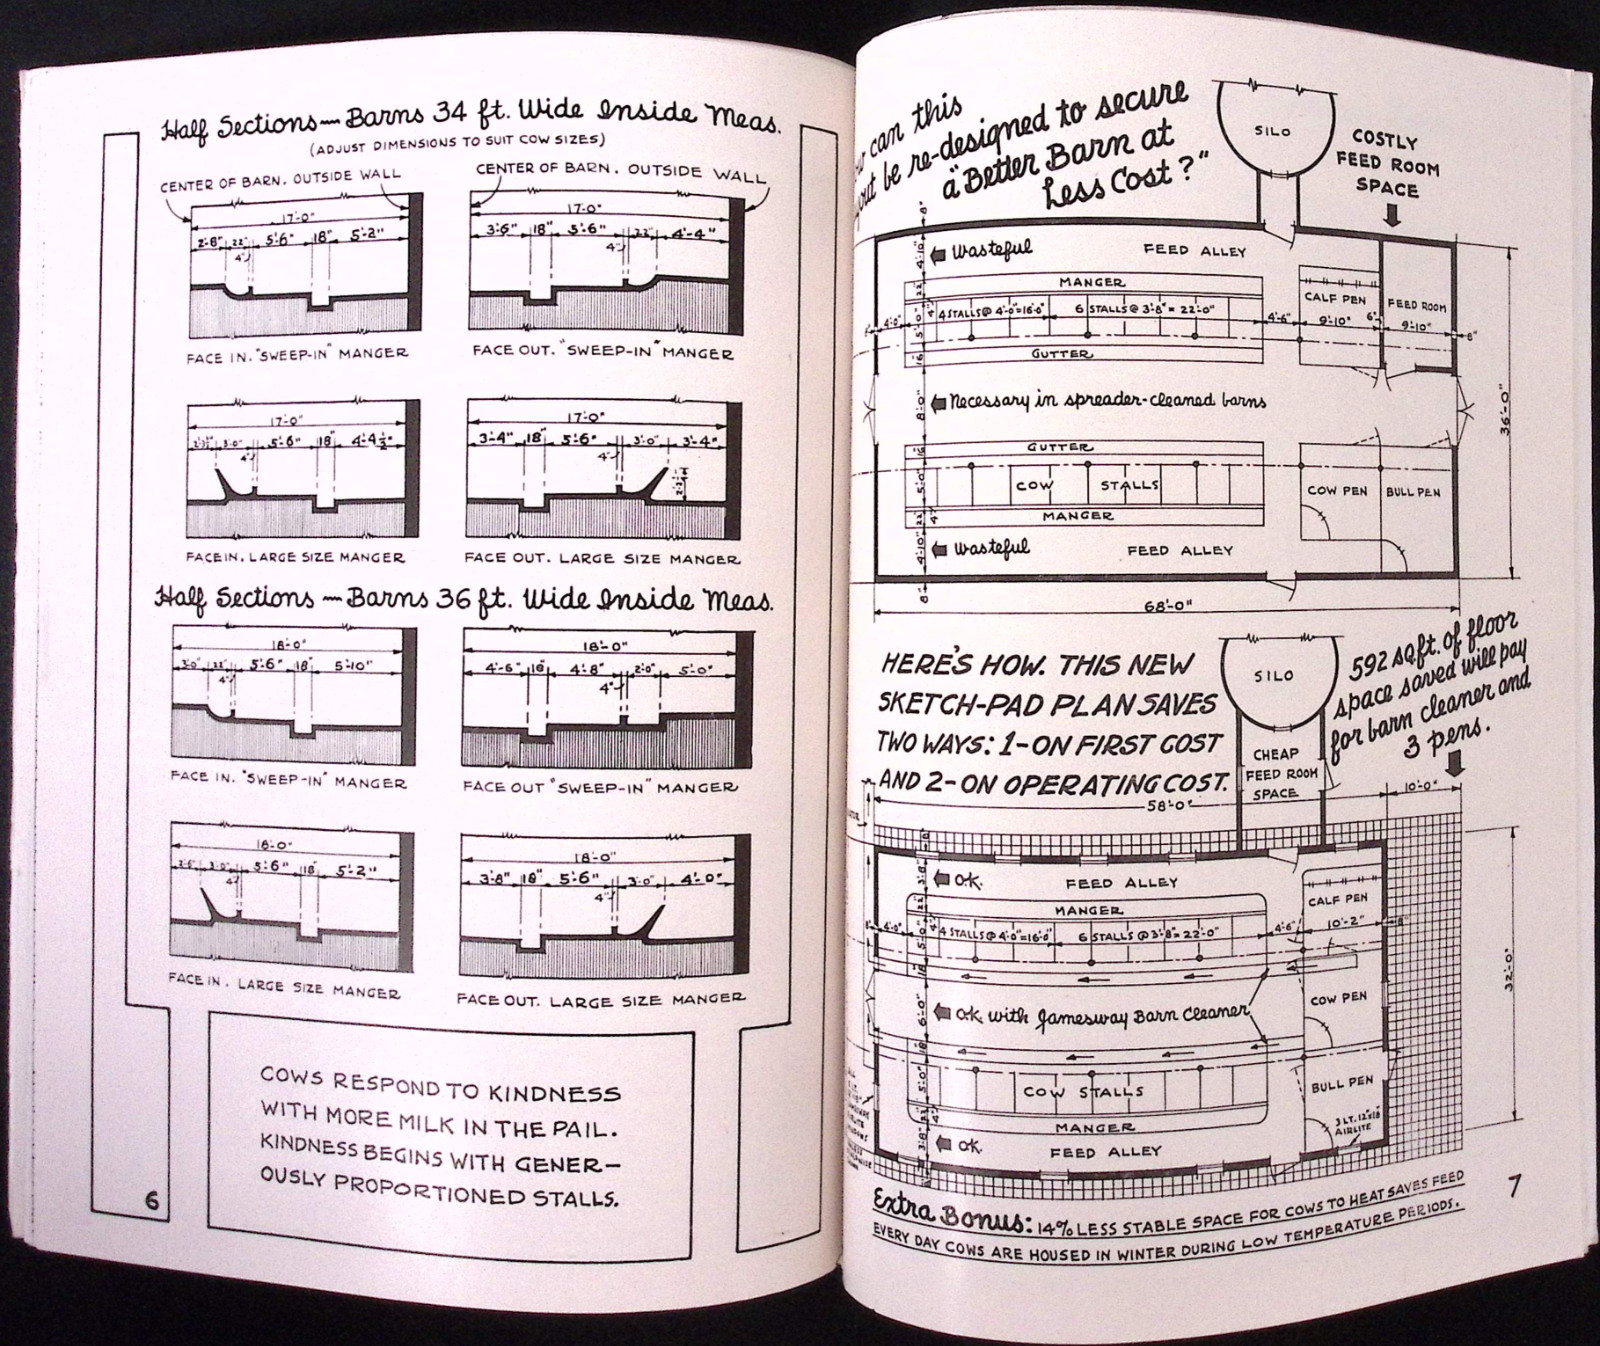 Half Sections — Barns 34 ft. Wide Inside Meas.
(ADJUST DIMENSIONS TO SUIT COW SIZES)
CENTER OF BARN. OUTSIDE WALL
CENTER OF BARN. OUTSIDE WALL
17'-0"
2'-8" 22" 5'-6" 18" 5'-2"
4"
FACE IN. "SWEEP-IN" MANGER
17'-0"
3'-6" 18" 5'-6" 22" 4'-4"
4"
FACE OUT. "SWEEP-IN" MANGER
17'-0"
3'-0" 5'-6" 18" 4'-4½"
4"
FACE IN. LARGE SIZE MANGER
17'-0"
3'-4" 18" 5'-6" 3'-0" 3'-4"
4"
FACE OUT. LARGE SIZE MANGER
Half Sections — Barns 36 ft. Wide Inside Meas.
18'-0"
3'-0" 22" 5'-6" 18" 5'-10"
4"
FACE IN. "SWEEP-IN" MANGER
18'-0"
4'-6" 18" 4'-8" 2'-0" 5'-0"
4"
FACE OUT "SWEEP-IN" MANGER
18'-0"
2'-6" 3'-0" 5'-6" 18" 5'-2"
4"
FACE IN. LARGE SIZE MANGER
18'-0"
3'-8" 18" 5'-6" 3'-0" 4'-0"
4"
FACE OUT. LARGE SIZE MANGER
COWS RESPOND TO KINDNESS
WITH MORE MILK IN THE PAIL.
KINDNESS BEGINS WITH GENER-
OUSLY PROPORTIONED STALLS.
6
can this
be re-designed to secure
a "Better Barn at
Less Cost?"
SILO
COSTLY
FEED ROOM
SPACE
8"
4'-10"
Wasteful FEED ALLEY
MANGER
22"
4 STALLS @ 4'-0"=16'-0" 6 STALLS @ 3'-8"=22'-0"
4'-0" 5'-0" 4'-6"
CALF PEN FEED ROOM
9'-10" 6" 9'-10" 8"
GUTTER
16"
8'-0"
Necessary in spreader-cleaned barns
36'-0"
GUTTER
16"
5'-0"
COW STALLS
COW PEN BULL PEN
22" 4"
MANGER
4'-10"
Wasteful FEED ALLEY
8"
68'-0"
HERE'S HOW. THIS NEW
SKETCH-PAD PLAN SAVES
TWO WAYS: 1-ON FIRST COST
AND 2-ON OPERATING COST.
SILO
592 sq.ft. of floor
space saved will pay
for barn cleaner and
3 pens.
CHEAP
FEED ROOM
SPACE
58'-0" 10'-0"
3'-8"
O.K. FEED ALLEY
MANGER
22" 4"
4 STALLS @ 4'-0"=16'-0" 6 STALLS @ 3'-8"=22'-0"
4'-0" 5'-0" 4'-6"
CALF PEN
10'-2" 8"
18"
6'-0"
O.K. with Jamesway Barn Cleaner
COW PEN
32'-0"
18"
5'-0"
COW STALLS
BULL PEN
22" 4"
MANGER
3 LT. 12"x18"
AIRLITE
3'-8"
O.K. FEED ALLEY
Extra Bonus: 14% LESS STABLE SPACE FOR COWS TO HEAT SAVES FEED
EVERY DAY COWS ARE HOUSED IN WINTER DURING LOW TEMPERATURE PERIODS.
7